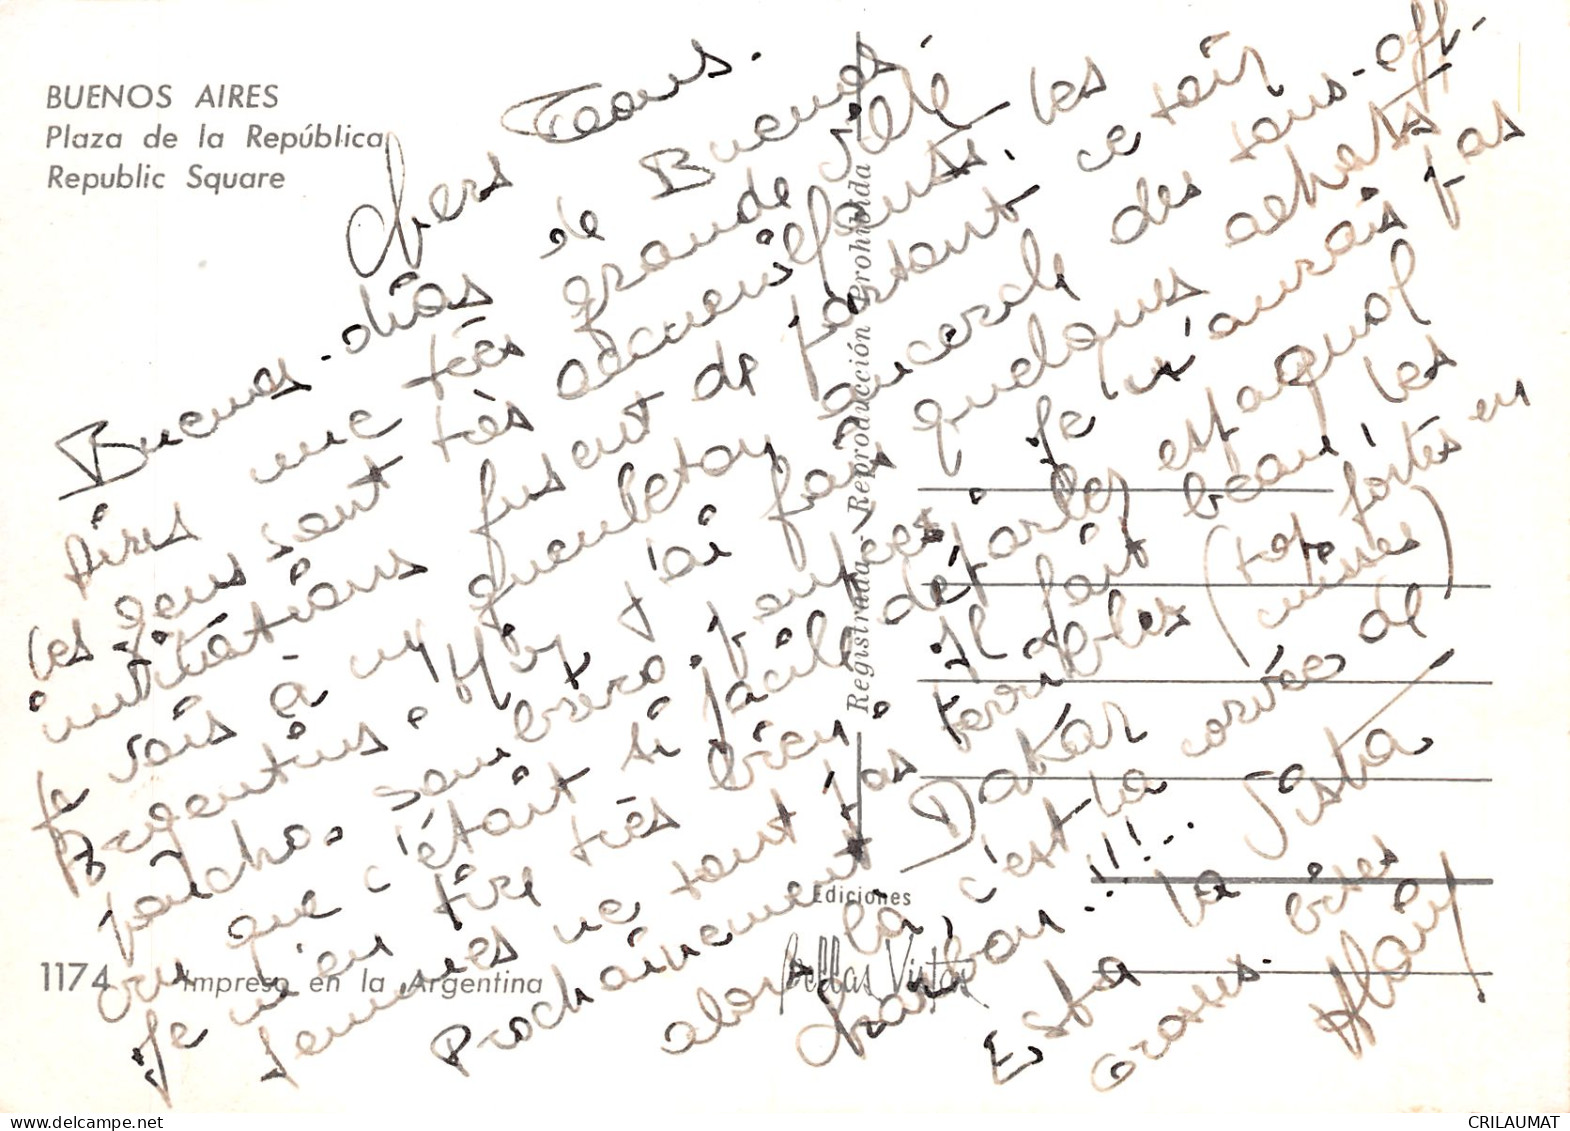 BUENOS AIRES
Plaza de la República
Republic Square
Chers Tous.
Buenos-dias de Buenos
Aires une très grande cité
les gens sont très accueillants. les
invitations fusent de partout ce soir
je vais à un quembetou au cercle des sous-off-
Argentins. Hier j'ai fais quelques achats
poncho. sombrero. je n'aurais pas
cru que c'était si facile de parler espagnol
je m'en tire très bien Il fait beau! les
femmes ne sont pas terribles (trop fortes en
cuisses)
Prochainement Dakar
alors là, c'est la corvée de
charbon..!!!...
Esta la Vista
Grosses bises
Alain
Registrada - Reproducción Prohibida
Ediciones
Bellas Vistas
1174
Impreso en la Argentina
CRILAUMAT